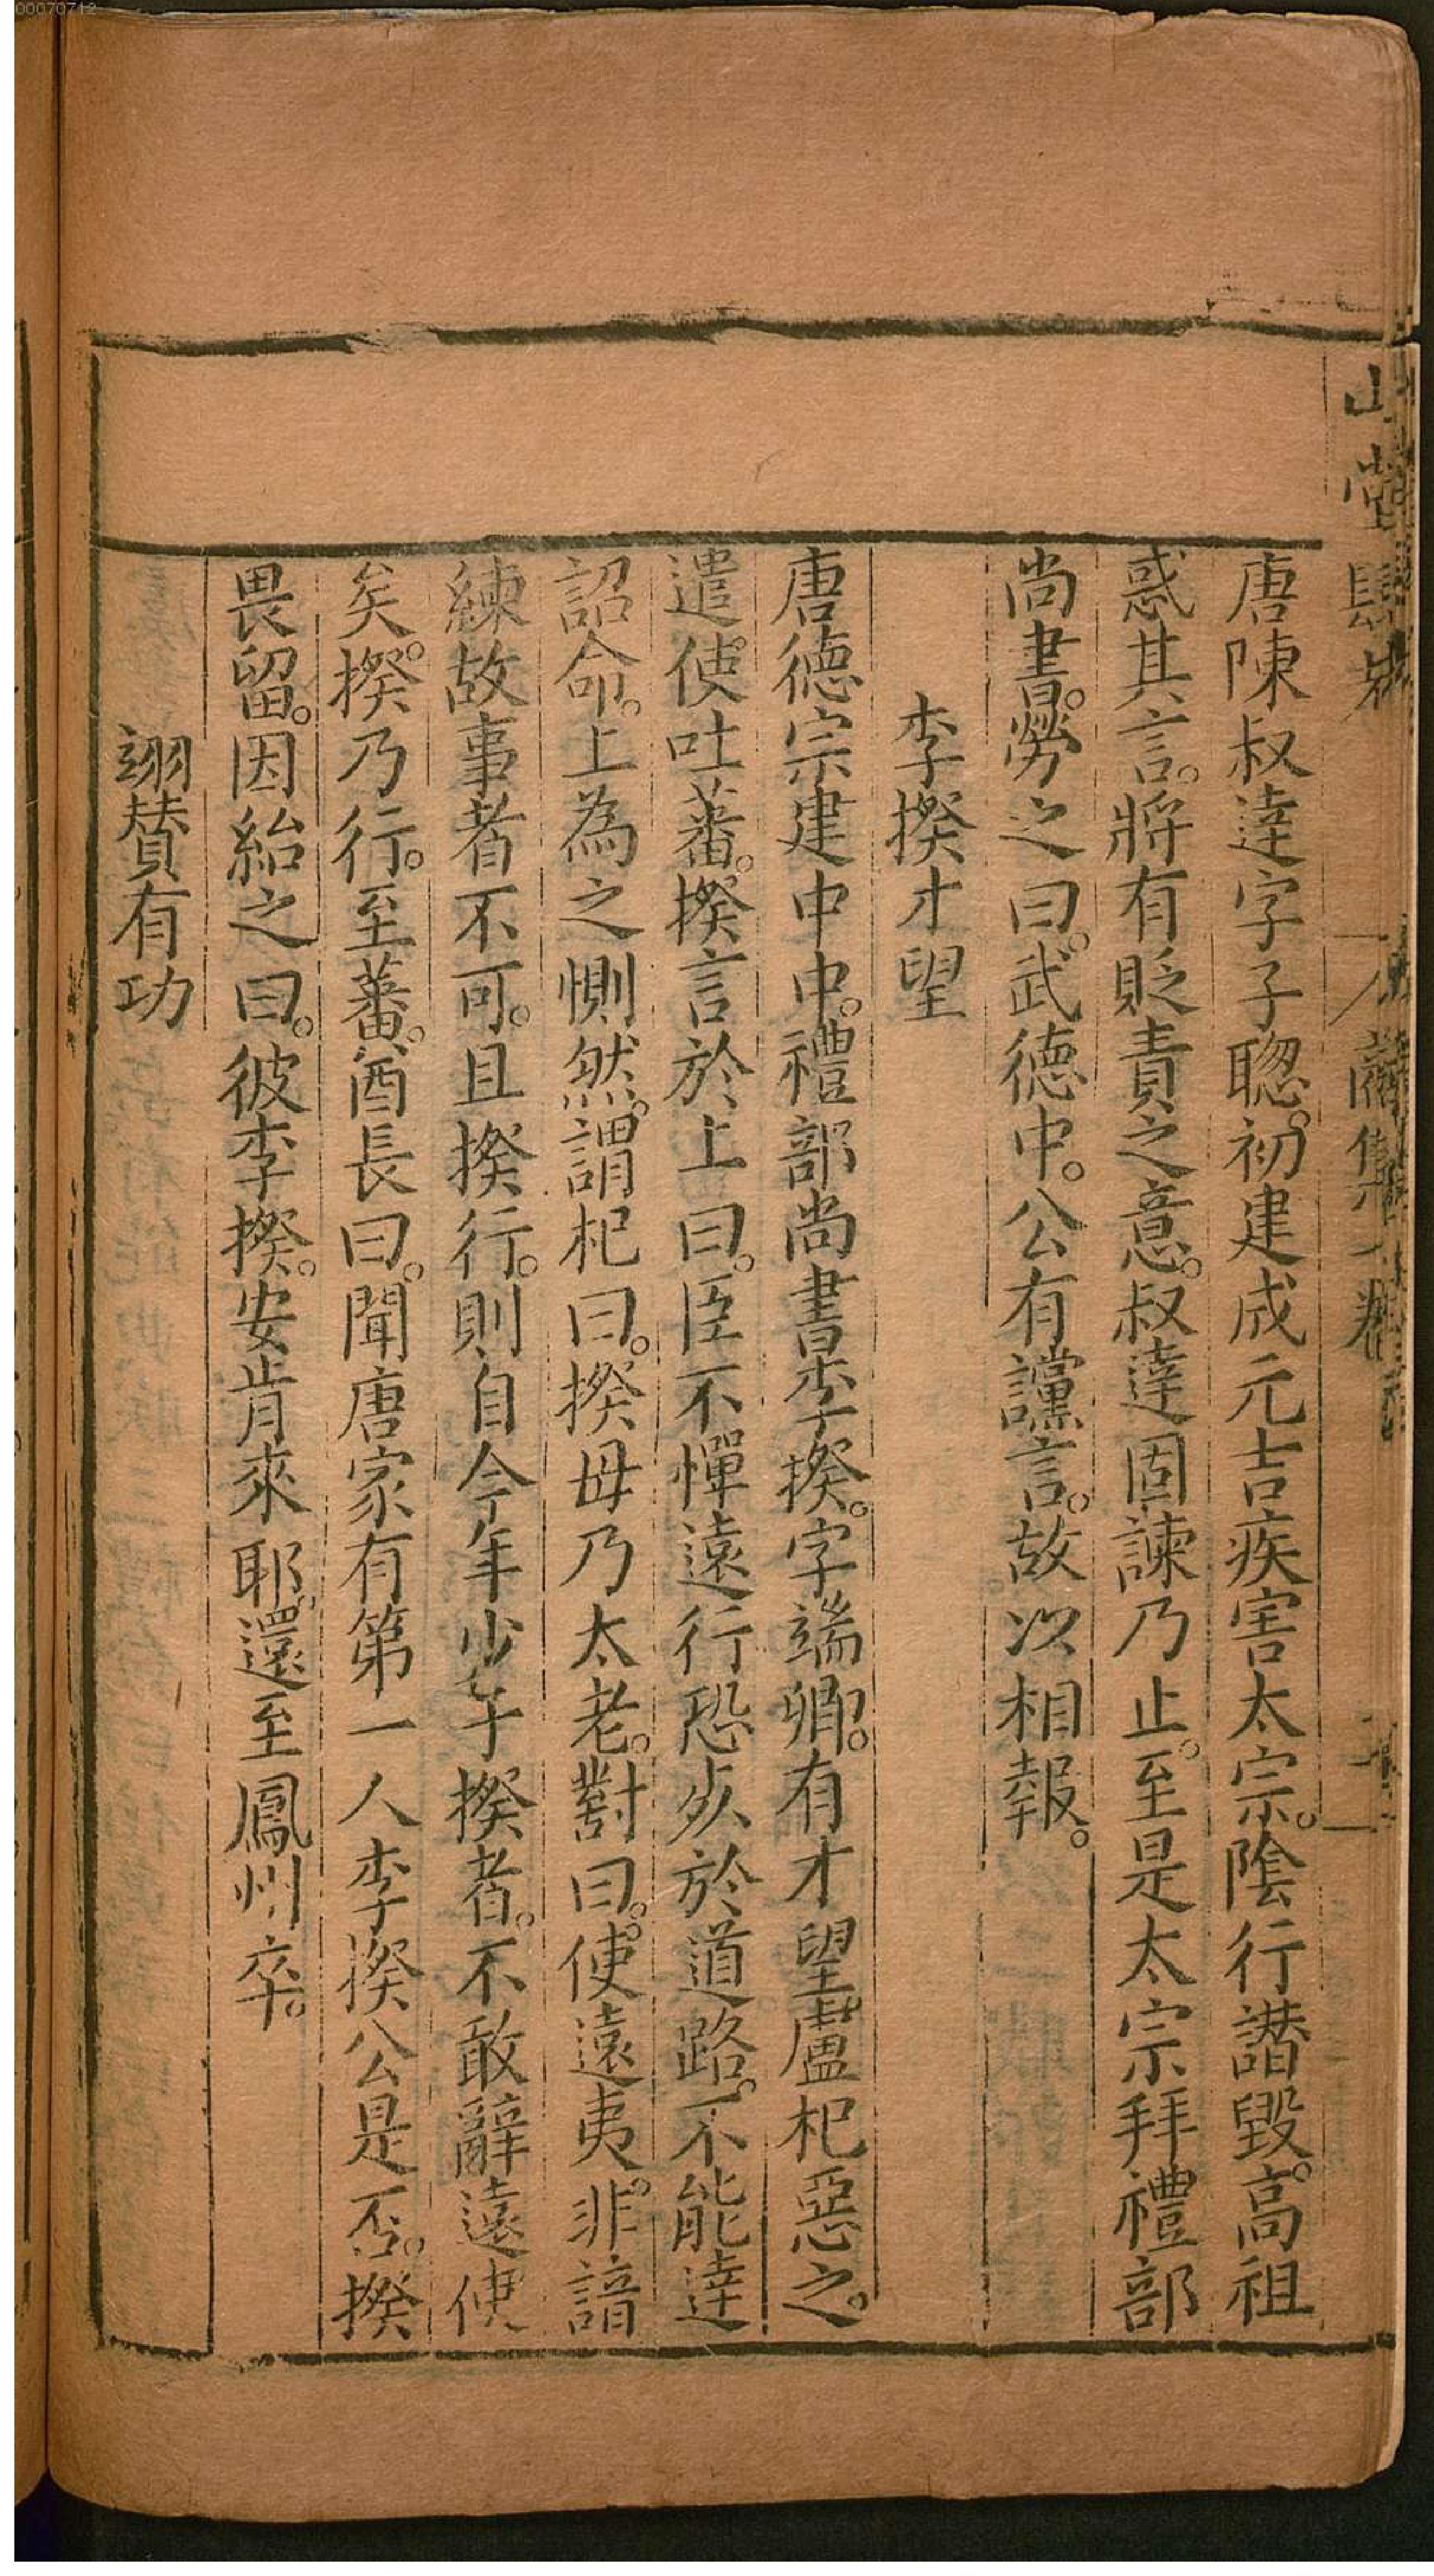 00070712
山堂肆考
唐陳叔達字子聦。初建成元吉疾害太宗。陰行譖毀。高祖
惑其言。將有貶責之意。叔達固諫乃止。至是太宗拜禮部
尚書。勞之曰。武德中。公有讜言。故以相報。
李揆才望
唐德宗建中中。禮部尚書李揆。字端卿。有才望。盧杞惡之。
遣使吐蕃。揆言於上曰。臣不憚遠行恐死於道路。不能達
詔命。上為之惻然。謂杞曰。揆毋乃太老。對曰。使遠夷。非諳
練故事者不可。且揆行。則自今年少于揆者。不敢辭遠使
矣。揆乃行。至蕃。酋長曰。聞唐家有第一人李揆公是否。揆
畏留。因紿之曰。彼李揆。安肯來耶。還至鳳州卒。
翊賛有功